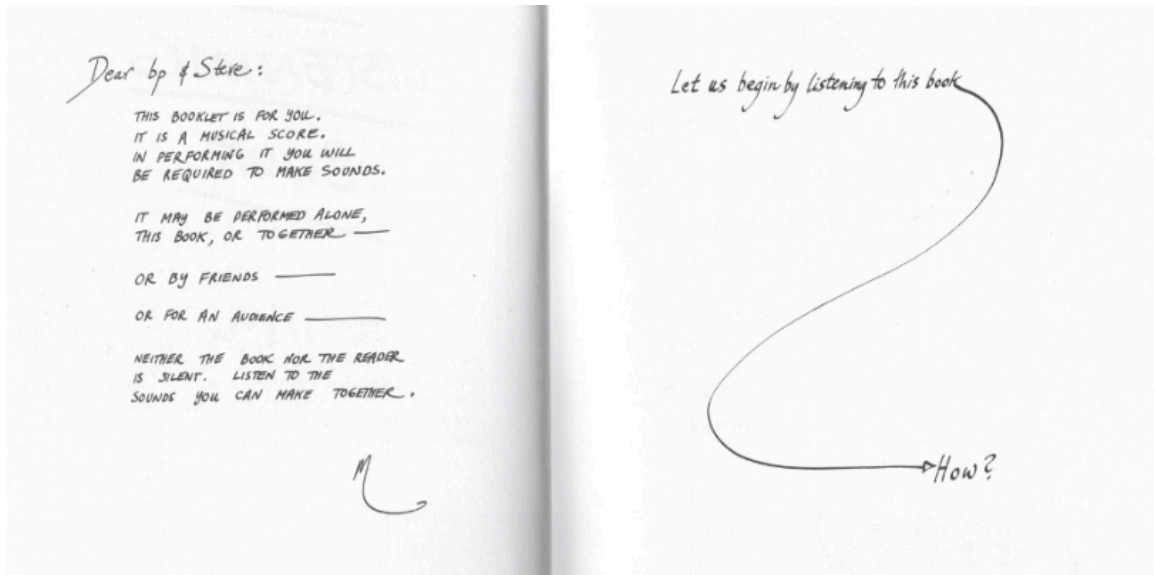 Dear bp & Steve:
THIS BOOKLET IS FOR YOU.
IT IS A MUSICAL SCORE.
IN PERFORMING IT YOU WILL
BE REQUIRED TO MAKE SOUNDS.
IT MAY BE PERFORMED ALONE,
THIS BOOK, OR TOGETHER
OR BY FRIENDS
OR FOR AN AUDIENCE
NEITHER THE BOOK NOR THE READER
IS SILENT. LISTEN TO THE
SOUNDS YOU CAN MAKE TOGETHER.
M
Let us begin by listening to this book
How?